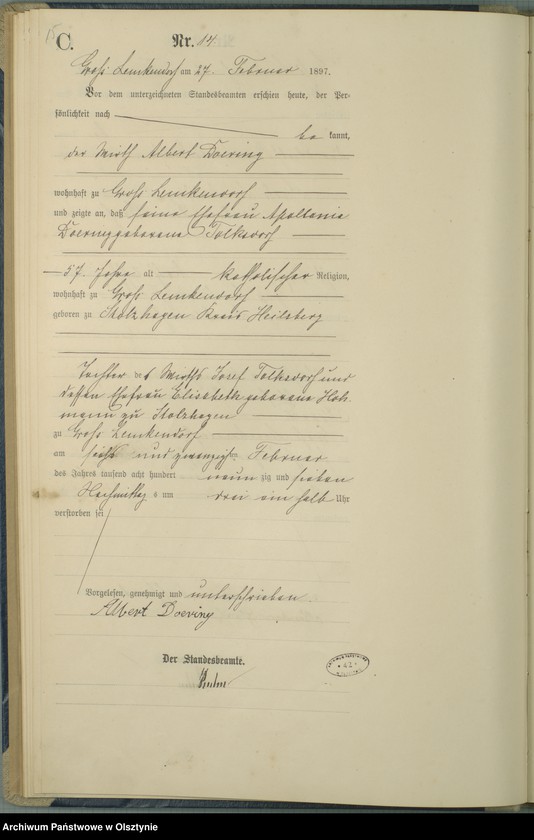 15
C.
Nr. 14.
Groß Lemkendorf am 27. Februar 1897.
Vor dem unterzeichneten Standesbeamten erschien heute, der Per-
sönlichkeit nach
be kannt,
der Wirth Albert Doering
wohnhaft zu Groß Lemkendorf
und zeigte an, daß seine Ehefrau Apollonia
Doering geborene Tolksdorf
57 Jahre alt katholischer Religion,
wohnhaft zu Groß Lemkendorf
geboren zu Stolzhagen Kreis Heilsberg
Tochter des Wirths Josef Tolksdorf und
dessen Ehefrau Elisabeth geborene Hoh-
mann zu Stolzhagen
zu Groß Lemkendorf
am sechs und zwanzigsten Februar
des Jahres tausend acht hundert neun zig und sieben
Nachmittags um drei ein halb Uhr
verstorben sei
Vorgelesen, genehmigt und unterschrieben.
Albert Doering
Der Standesbeamte.
Archiwum Państwowe w Olsztynie